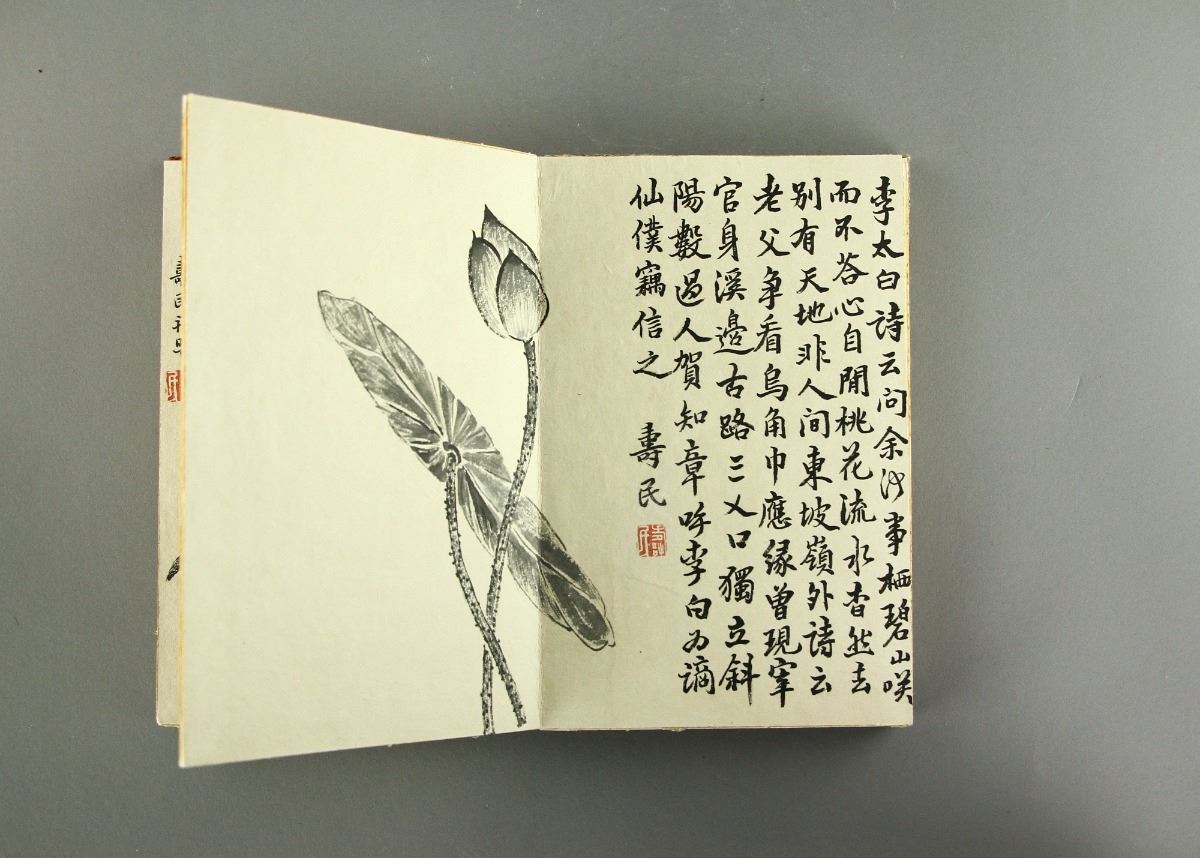 李太白詩云问余何事栖碧山咲
而不荅心自閒桃花流水杳然去
别有天地非人间東坡嶺外詩云
老父争看烏角巾應緣曾現宰
官身溪邊古路三乂口獨立斜
陽數過人賀知章呼李白为謫
仙僕竊信之 壽民
壽民